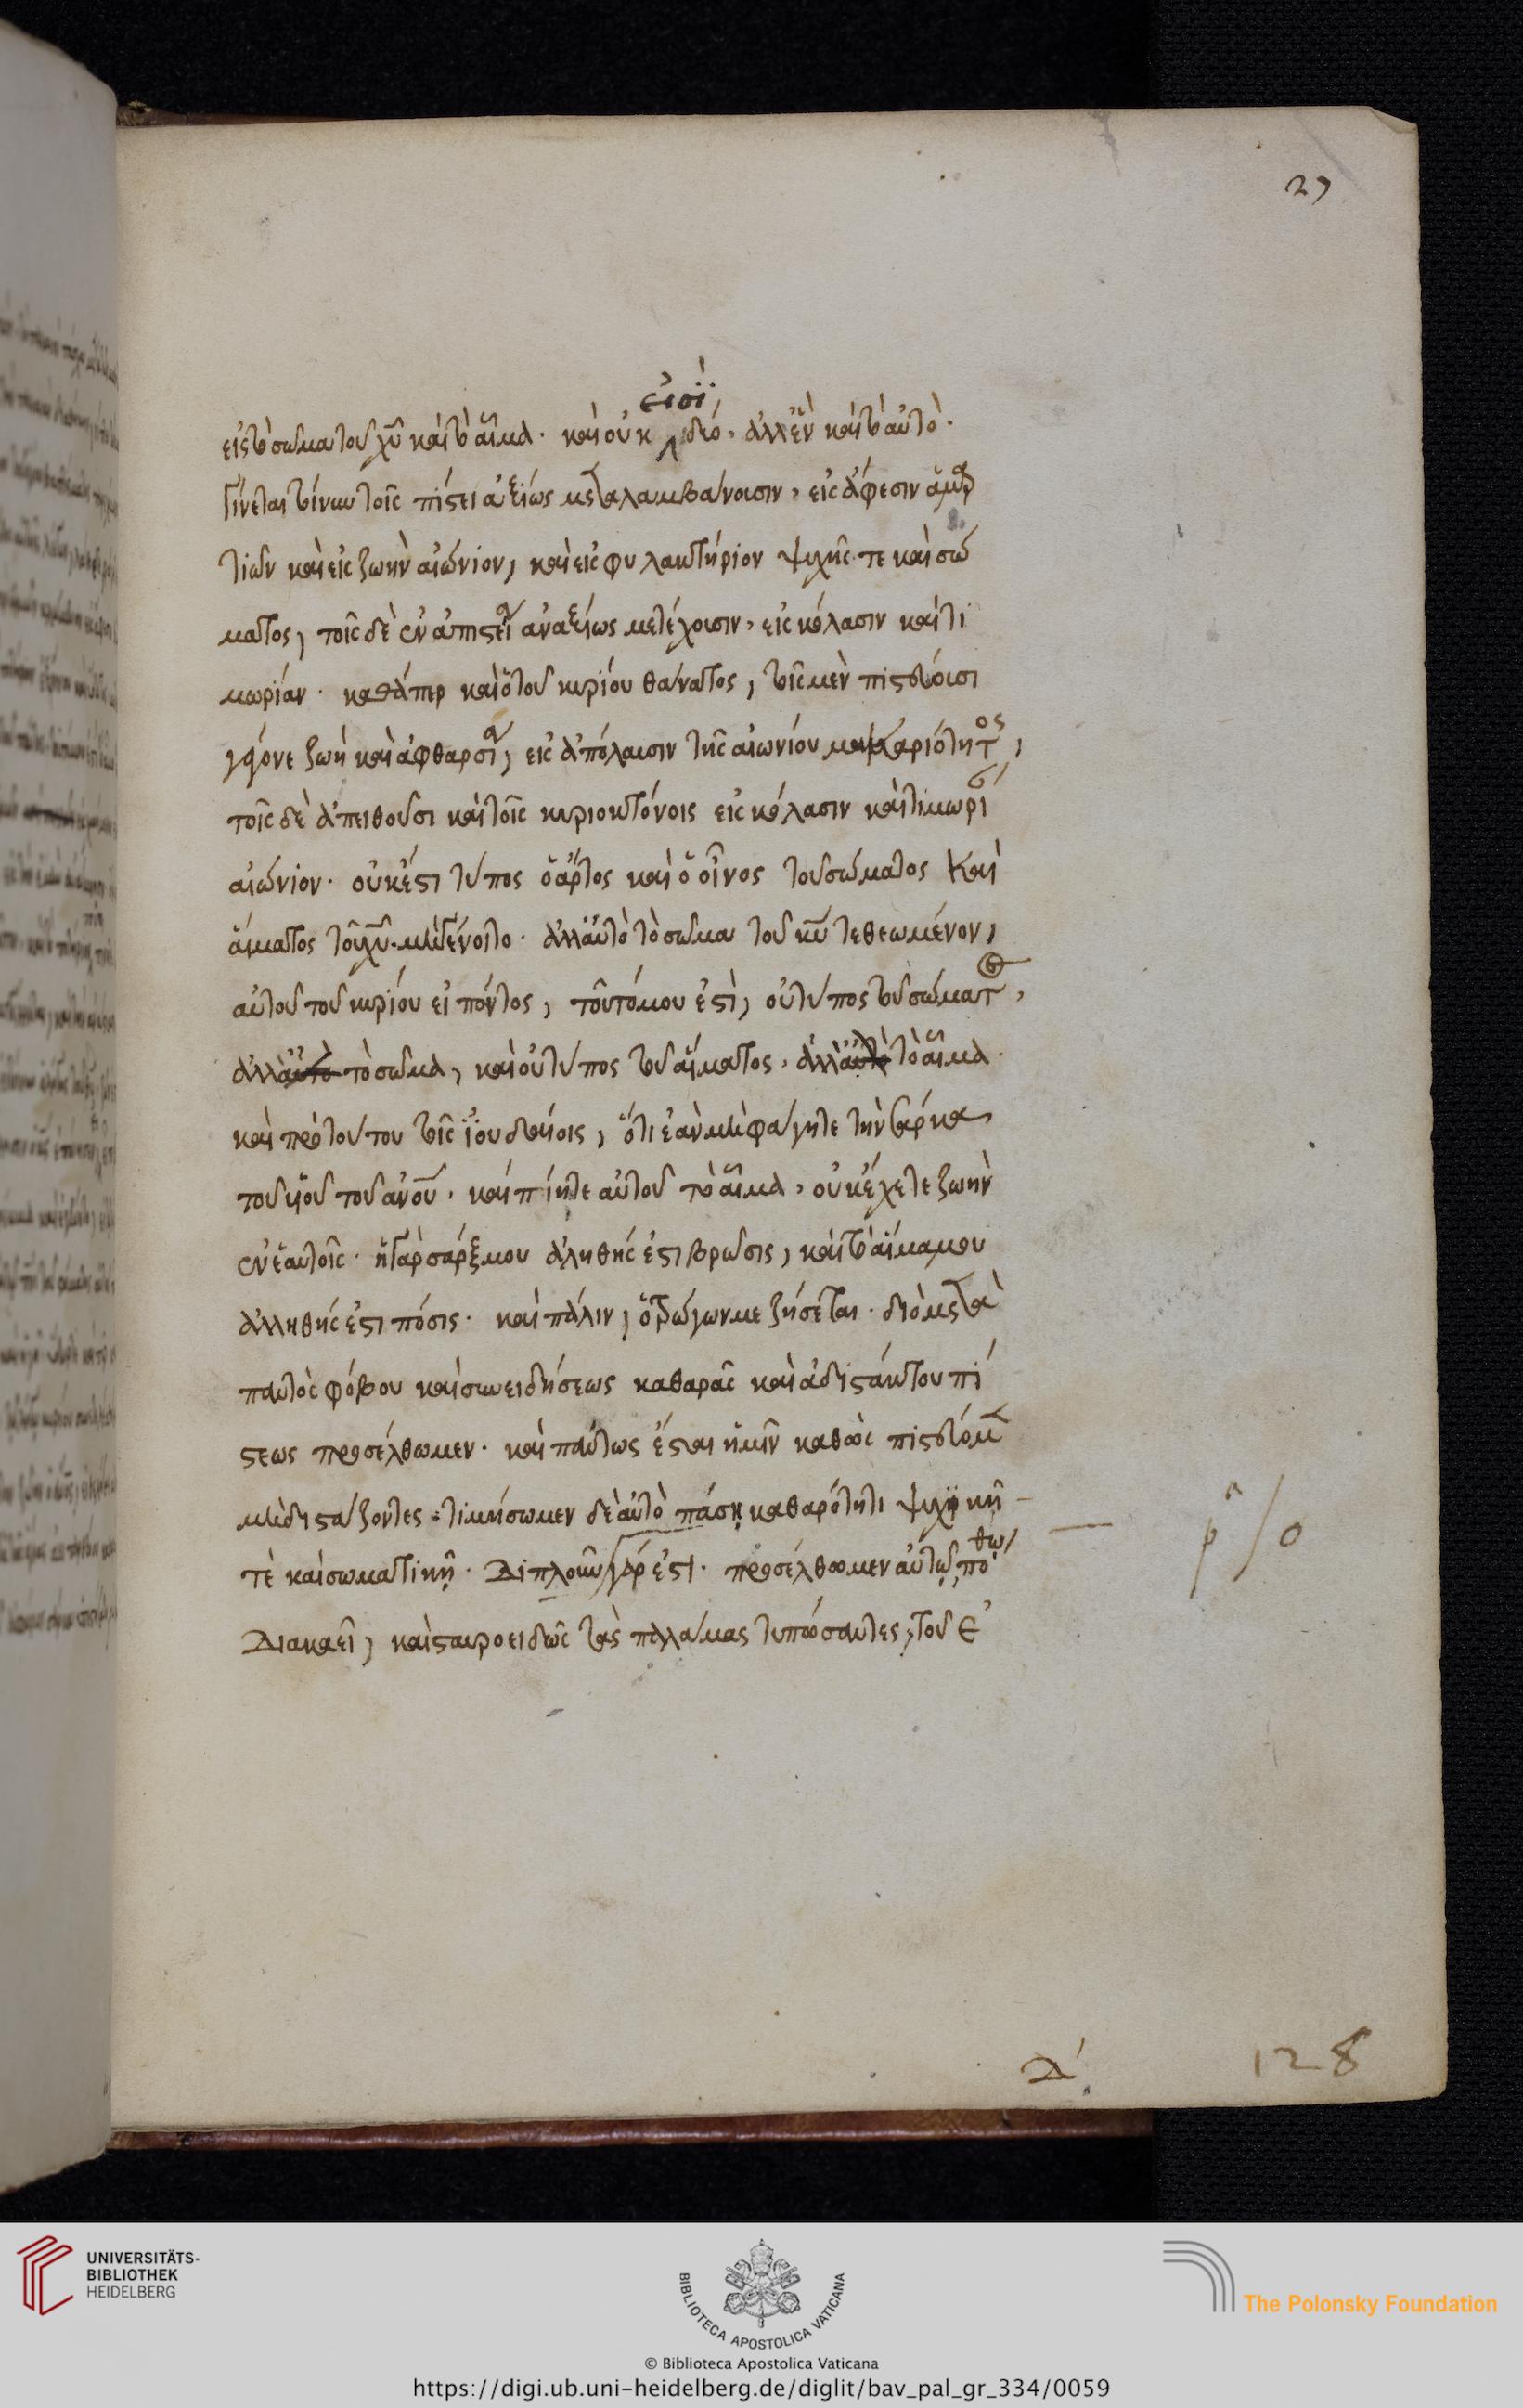 27
εἰσὶ,
εἰς τὸ σῶμα τοῦ χῦ καὶ τὸ αἷμα· καὶ οὐκ δύο, ἀλλ' ἓν καὶ τὸ αὐτὸ·
Γίνεται τοίνυν τοῖς πίστει ἀξίως μεταλαμβάνουσιν, εἰς ἄφεσιν ἁμαρ
τιῶν καὶ εἰς ζωὴν αἰώνιον, καὶ εἰς φυλακτήριον ψυχῆς τε καὶ σώ
ματος, τοῖς δὲ ἐν ἀπιστεία ἀναξίως μετέχουσιν, εἰς κόλασιν καὶ τι
μωρίαν· καθάπερ καὶ ὁ τοῦ κυρίου θάνατος, τοῖς μὲν πιστεύουσι
γέγονε ζωὴ καὶ ἀφθαρσία, εἰς ἀπόλαυσιν τῆς αἰωνίου μακαριότητος,
τοῖς δὲ ἀπειθοῦσι καὶ τοῖς κυριοκτόνοις εἰς κόλασιν καὶ τιμωρί
αἰώνιον· οὐκ ἔστι τύπος ὁ ἄρτος καὶ ὁ οἶνος τοῦ σώματος καὶ
αἵματος τοῦ χῦ· μὴ γένοιτο· ἀλλ' αὐτὸ τὸ σῶμα τοῦ κῦ τεθεωμένον,
αὐτοῦ τοῦ κυρίου εἰπόντος, τοῦτό μου ἐστὶ, οὐ τύπος τοῦ σώματος,
ἀλλὰ αὐτὸ τὸ σῶμα, καὶ οὐ τύπος τοῦ αἵματος, ἀλλὰ αὐτὸ τὸ αἷμα·
καὶ πρὸ τούτου τοῖς ἰουδαίοις, ὅτι ἐὰν μὴ φάγητε τὴν σάρκα
τοῦ υἱοῦ τοῦ ἀνοῦ, καὶ πίητε αὐτοῦ τὸ αἷμα, οὐκ ἔχετε ζωὴν
ἐν ἑαυτοῖς· ἡ γὰρ σάρξ μου ἀληθής ἐστι βρῶσις, καὶ τὸ αἷμα μου
ἀληθής ἐστι πόσις· καὶ πάλιν, ὁ τρώγων με ζήσεται· διὸ μετὰ
παντὸς φόβου καὶ συνειδήσεως καθαρᾶς καὶ ἀδιστάκτου πί
στεως προσέλθωμεν· καὶ πάντως ἔσται ἡμῖν καθὼς πιστεύομεν
μὴ διστάζοντες· τιμήσωμεν δὲ αὐτὸ πάση καθαρότητι ψυχικῆ
τὲ καὶ σωματικῆ· Διπλοῦν γάρ ἐστι· προσέλθωμεν αὐτῷ πόθω
Διακαεῖ, καὶ σταυροειδῶς τὰς παλάμας τυπώσαντες, τοῦ ἐ
128
UNIVERSITÄTS-
BIBLIOTHEK
HEIDELBERG
BIBLIOTECA APOSTOLICA VATICANA
The Polonsky Foundation
© Biblioteca Apostolica Vaticana
https://digi.ub.uni-heidelberg.de/diglit/bav_pal_gr_334/0059